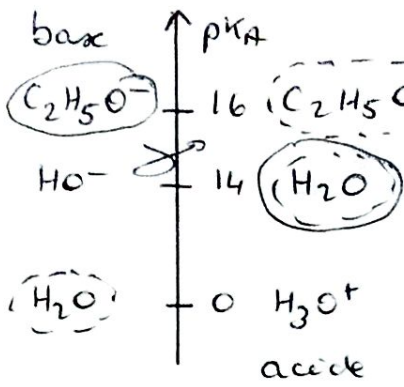 base pKA
C₂H₅O⁻ 16 C₂H₅O
HO⁻ 14 H₂O
H₂O 0 H₃O⁺
acide